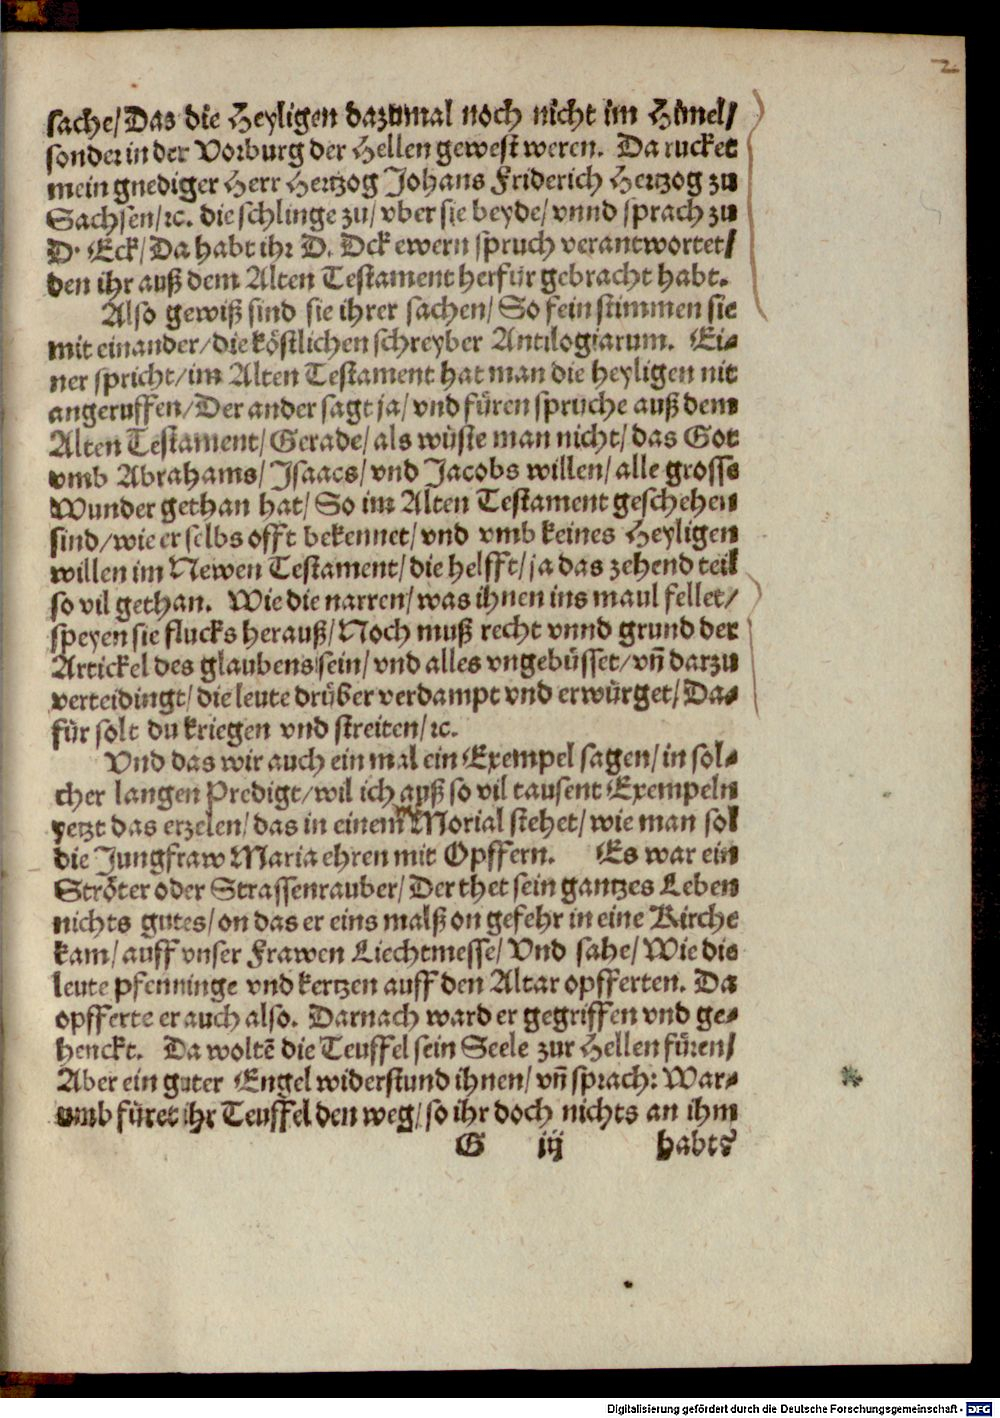 2
sache/ Das die Heyligen dazumal noch nicht im Himel/
sonder in der Vorburg der Hellen gewest weren. Da rucket
mein gnediger Herr Hertzog Johans Friderich Hertzog zu
Sachsen/ ꝛc. die schlinge zu/ vber sie beyde/ vnnd sprach zu
D. Eck/ Da habt ihr D. Dck ewern spruch verantwortet/
den ihr auß dem Alten Testament herfür gebracht habt.
Also gewiß sind sie ihrer sachen/ So fein stimmen sie
mit einander/ die köstlichen schreyber Antilogiarum. Ei⸗
ner spricht/ im Alten Testament hat man die heyligen nit
angeruffen/ Der ander sagt ja/ vnd füren spruche auß dem
Alten Testament/ Gerade/ als wüste man nicht/ das Got
vmb Abrahams/ Isaacs/ vnd Jacobs willen/ alle grosse
Wunder gethan hat/ So im Alten Testament geschehen
sind/ wie er selbs offt bekennet/ vnd vmb keines Heyligen
willen im Newen Testament/ die helfft/ ja das zehend teil
so vil gethan. Wie die narren/ was ihnen ins maul fellet/
speyen sie flucks herauß/ Noch muß recht vnnd grund der
Artickel des glaubens sein/ vnd alles vngebüsset/ vñ darzu
verteidingt/ die leute drüber verdampt vnd erwürget/ Da⸗
für solt du kriegen vnd streiten/ ꝛc.
Vnd das wir auch ein mal ein Exempel sagen/ in sol⸗
cher langen Predigt/ wil ich auß so vil tausent Exempeln
yetzt das erzelen/ das in einem Morial stehet/ wie man sol
die Jungfraw Maria ehren mit Opffern. Es war ein
Ströter oder Strassenrauber/ Der thet sein gantzes Leben
nichts gutes/ on das er eins malß on gefehr in eine Kirche
kam/ auff vnser Frawen Liechtmesse/ Vnd sahe/ Wie die
leute pfenninge vnd kertzen auff den Altar opfferten. Da
opfferte er auch also. Darnach ward er gegriffen vnd ge⸗
henckt. Da woltē die Teuffel sein Seele zur Hellen füren/
Aber ein guter Engel widerstund ihnen/ vñ sprach: War⸗
umb füret ihr Teuffel den weg/ so ihr doch nichts an ihm
G iij habt?
Digitalisierung gefördert durch die Deutsche Forschungsgemeinschaft - DFG